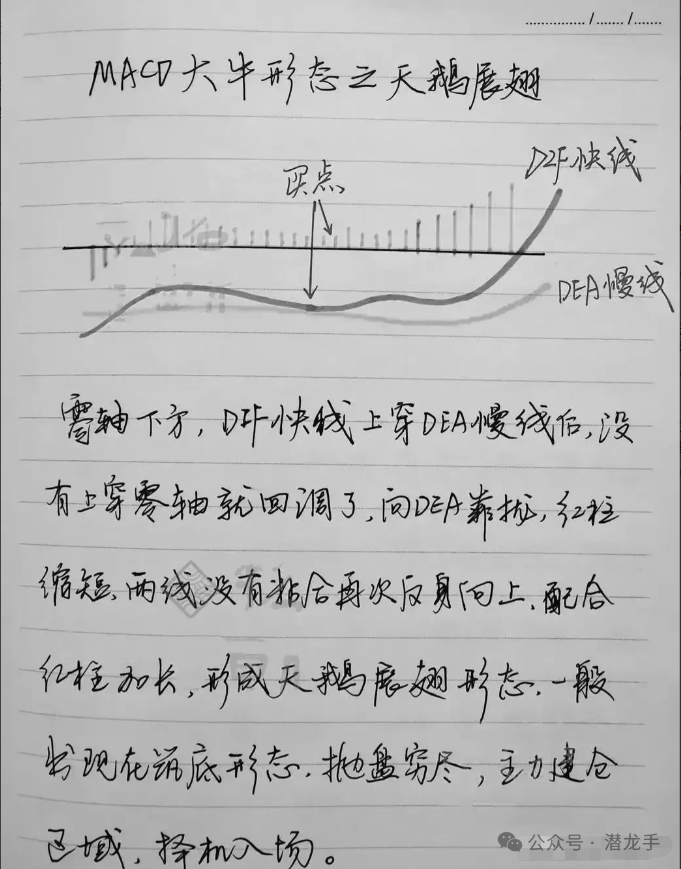 MACD大牛形态之天鹅展翅
买点
DIF快线
DEA慢线
零轴下方，DIF快线上穿DEA慢线后，没
有上穿零轴就回调了，向DEA靠拢，红柱
缩短、两线没有粘合再次反身向上，配合
红柱加长，形成天鹅展翅形态，一般
出现在筑底形态，抛盘穷尽，主力建仓
区域，择机入场。
公众号·潜龙手